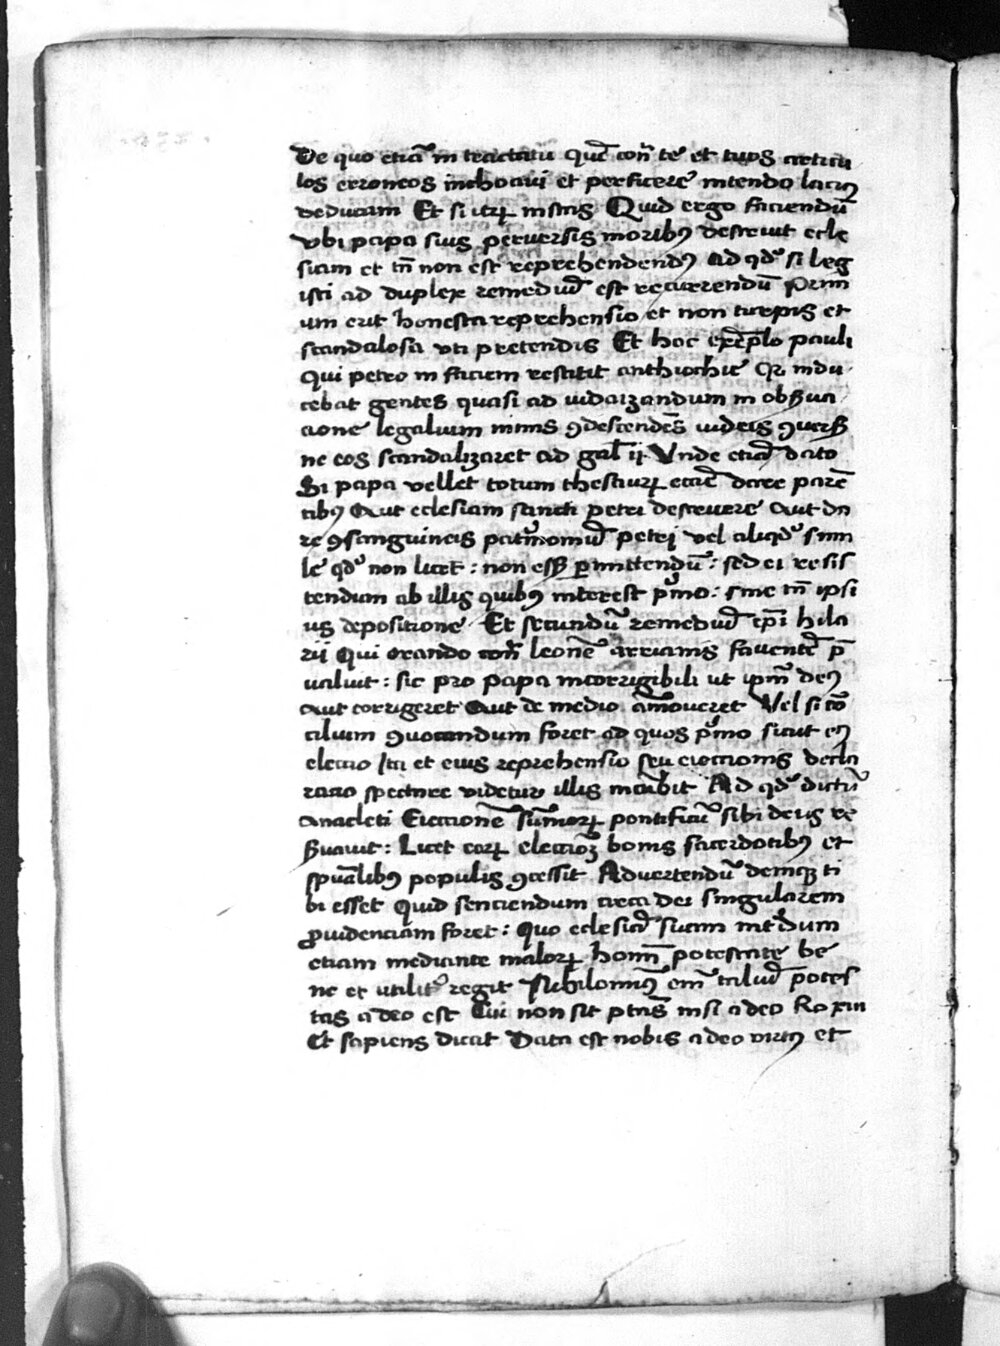 De quo eciā in tractatu quē con̄ te et tuos articu
los erroneos inchoaui et perficere intendo laciꝰ
deducam Et si iteꝝ instas Quid ergo faciendū
vbi papa suis peruersis moribꝰ destruit eccle
siam et tn̄ non est reprehendendꝰ Ad qd' si leg
isti ad duplex remediū est recurrendū Prim
um erit honesta reprehensio et non turpis et
scandalosa vti pretendis Et hoc exēplo pauli
Qui petro in faciem restitit anthiochie Qr indu
cebat gentes quasi ad iudaizandum in obẞua
cione legalium nimis ꝯdescendēs iudeis ꝯuersẞ
ne eos scandalizaret ad gal̄ ij Vnde eciā dato
Si papa vellet totum thesauꝝ eccīe dare parē
tibꝰ Aut eclesiam sancti petri destruere Aut da
re ꝯsanguineis patⁱmoniū petri vel aliqd' simi
le qd' non licet : non essꝫ ꝑmittendū : sed ei resis
tendum ab illis quibꝰ interest pⁱmo : sine tn̄ ipsi
us depositione Et secundū remediū ep̄i hila
rij Qui orando con̄ leonē arrianis fauentē p̄
ualuit : sic pro papa incorrigibili ut ipm̄ deꝰ
Aut corrigeret Aut de medio amoueret Vel si cō
cilium ꝯuocandum foret ad quos pⁱmo sicut eiꝰ
electio Ita et eius reprehensio seu eiectionis decla
racio spectare videtur illis incūbit Ad qd' dictū
anacleti Eiectionē sūmoꝝ pontificū sibi deus re
ẞuauit : Licet eoꝝ electioꝫ bonis sacerdotibꝰ et
spūalibꝰ populis ꝯcessit Aduertendū deniqꝫ ti
bi esset Quid senciendum circa dei singularem
ꝓuidenciam foret : Quo eclesiā suam intⁱdum
etiam mediante maloꝝ homī potestate be
ne et utilit' regit Nichilominꝰ em̄ taliū potes
tas a deo est Cui non sit ptās nisi a deo Ro xiii
Et sapiens dicat Data est nobis a deo virtꝰ et